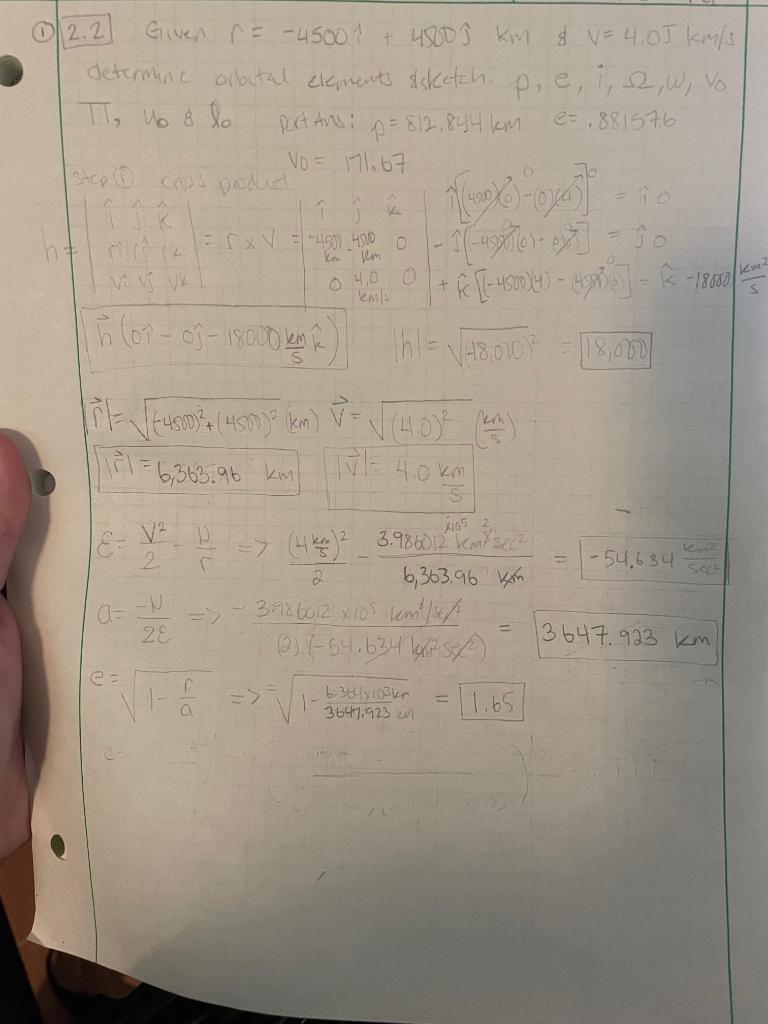 ① 2.2 Given r = -4500î + 4500ĵ km & v = 4.0J km/s
determine orbital elements & sketch. p, e, i, Ω, ω, ν₀
Π, u₀ & l₀ Part Ans: p = 812.844 km e = .881576
ν₀ = 171.67
Step ① cross product
h = | î ĵ k̂ | ri rj rk | vi vj vk | = r x v = | î ĵ k̂ | -4500 km 4500 km 0 | 0 4.0 km/s 0 |
î[(4500)(0) - (0)(4)] = î 0
- ĵ[(-4500)(0) - 0(0)] = ĵ 0
+ k̂[(-4500)(4) - (4500)(0)] = k̂ -18000 km²/s
h⃗ (0î - 0ĵ - 18000 km/s k̂) |h| = √(-18,000)² = 18,000
r⃗| = √(-4500)² + (4500)² (km) V⃗ = √(4.0)² (km/s)
|r⃗| = 6,363.96 km |V⃗| = 4.0 km/s
ε = V²/2 - μ/r => (4 km/s)²/2 - 3.986012 x10⁵ km³/sec²/6,363.96 km = -54.634 km²/sec²
a = -μ/2ε => - 3.986012 x10⁵ km³/sec²/(2)(-54.634 km²/sec²) = 3647.923 km
e = √1 - r/a => = √1 - 6.364x10³km/3647.923 km = 1.65